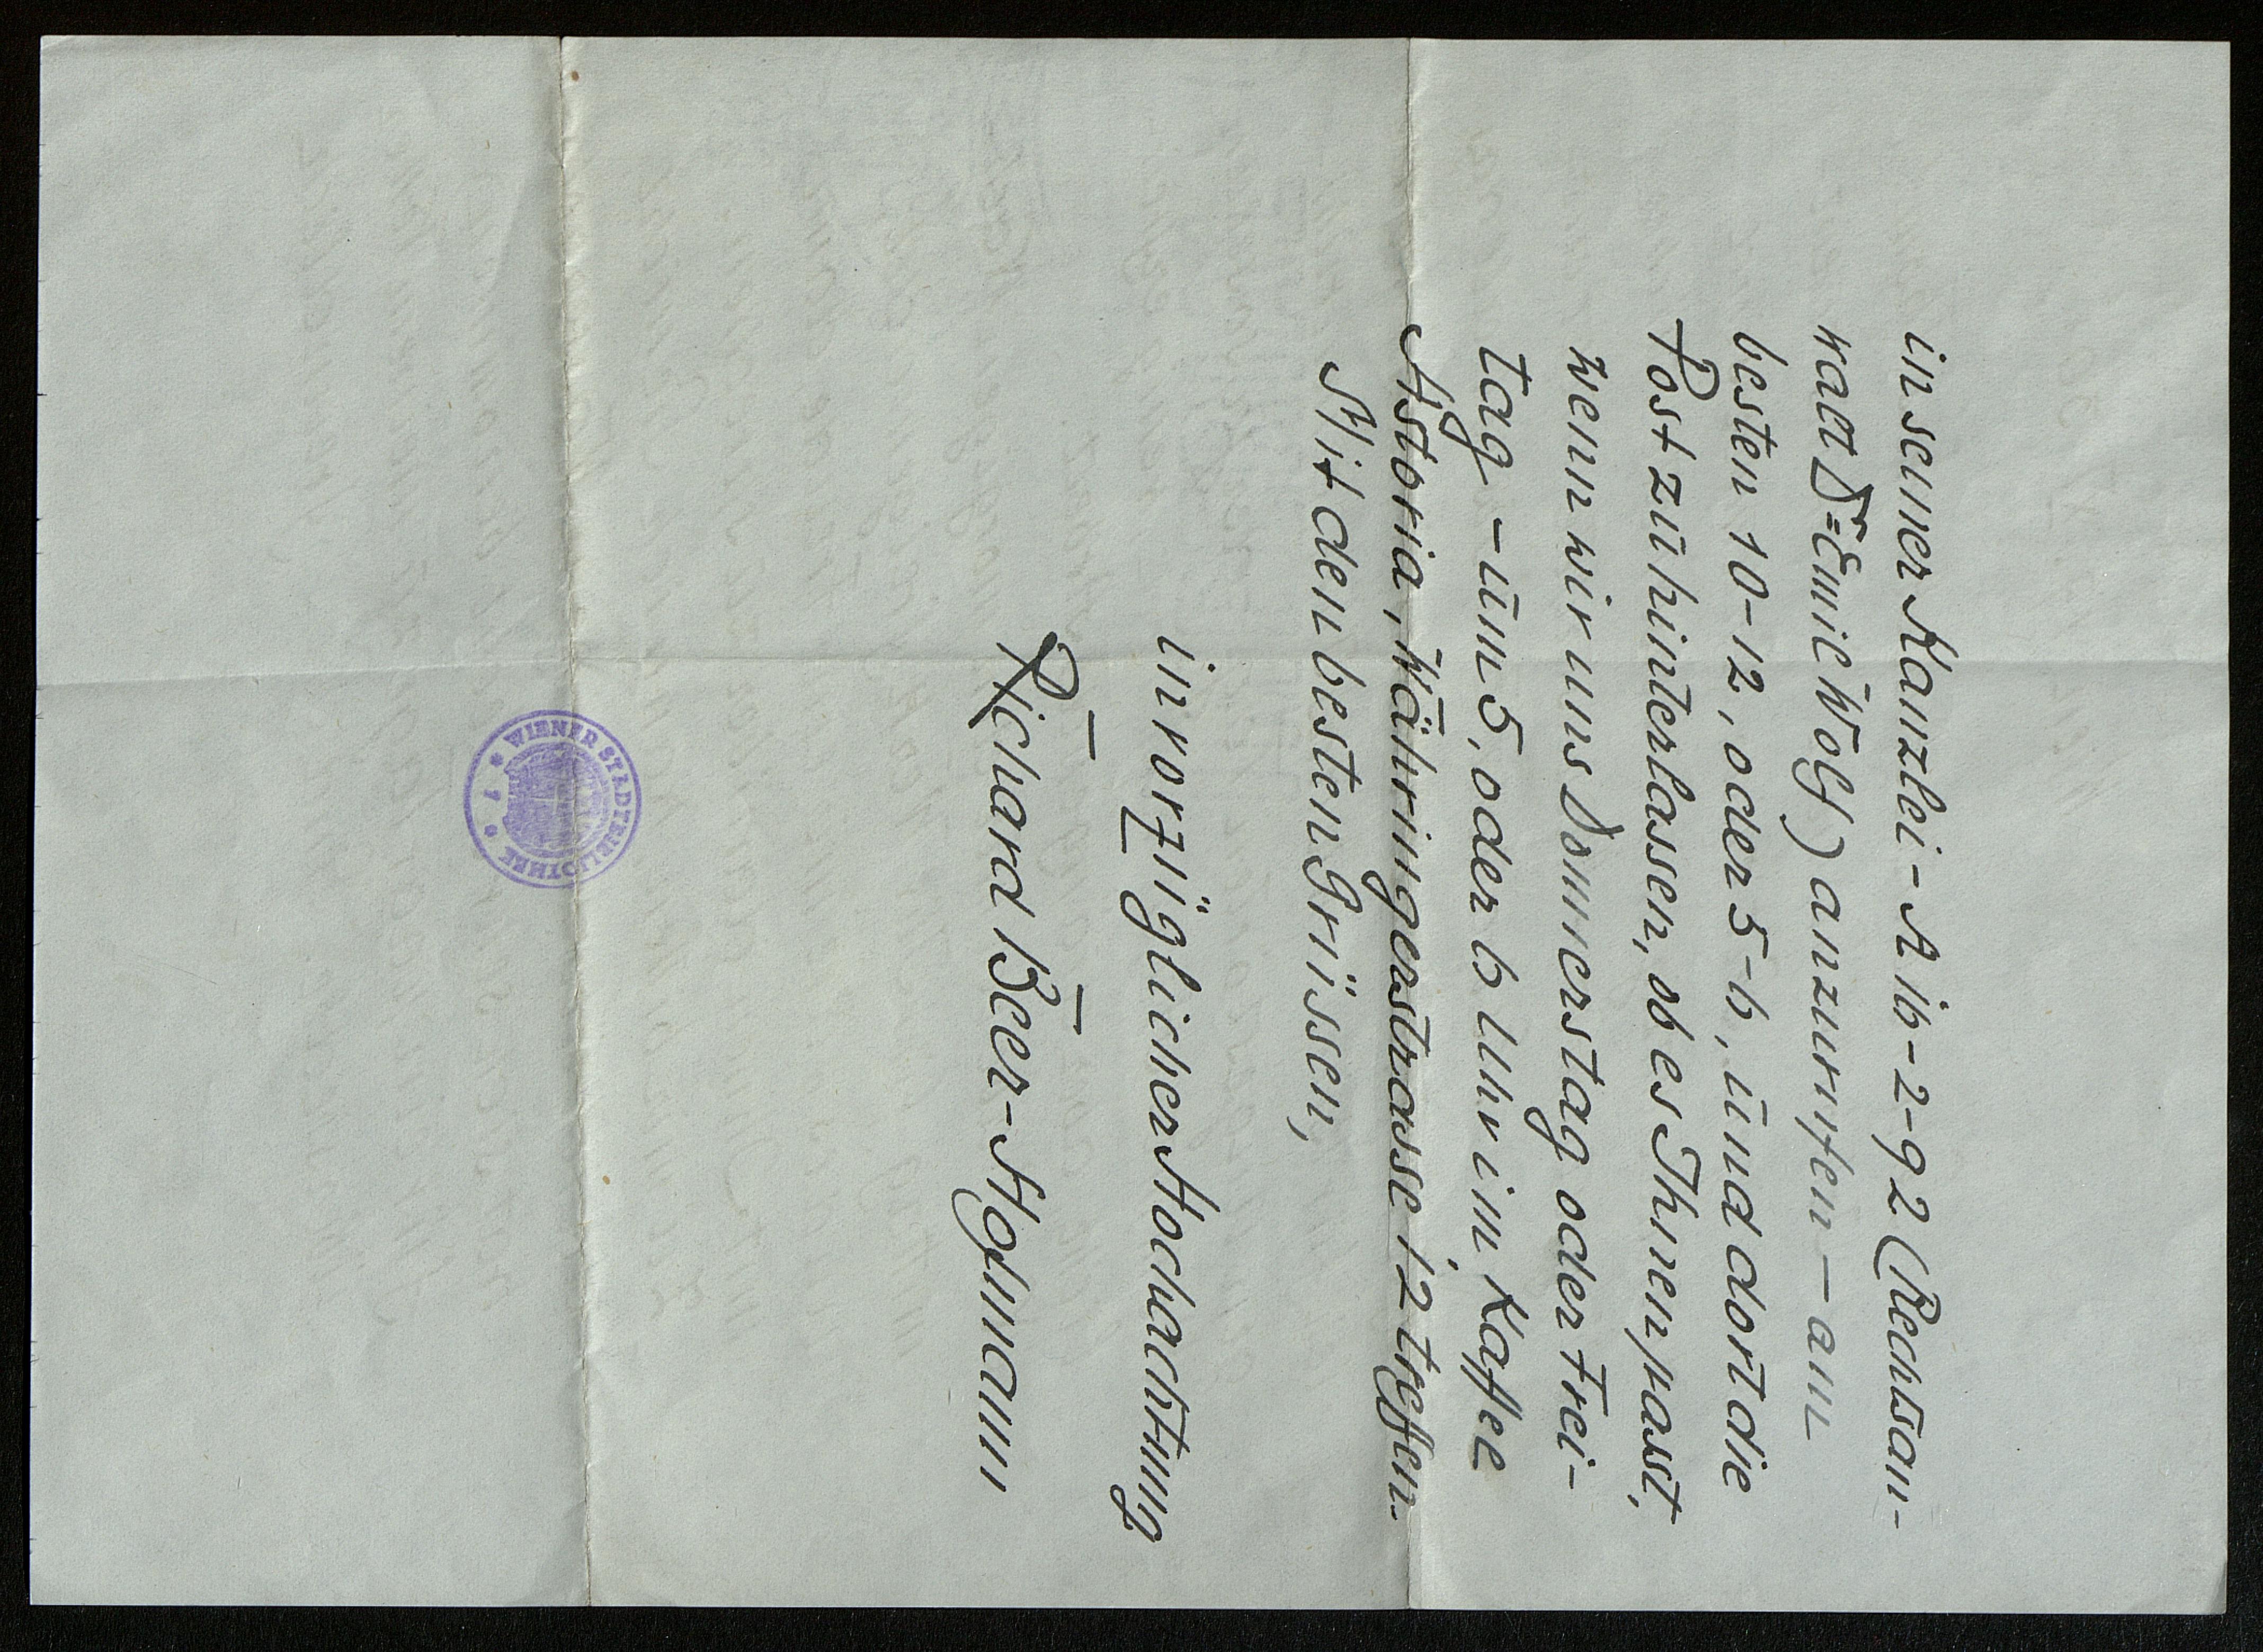 in seiner Kanzlei - A 16-2-92 (Rechtsan-
walt Dr Emil Wolf) anzurufen - am
besten 10-12, oder 5-6, und dort die
Post zu hinterlassen, ob es Ihnen passt,
wenn wir uns Donnerstag oder Frei-
tag - um 5, oder 6 Uhr im Kaffee
Astoria, Währingerstrasse 12 treffen.
Mit den besten Grüssen,
in vorzüglicher Hochachtung
Richard Beer-Hofmann
WIENER STADTBIBLIOTHEK
* 1 *